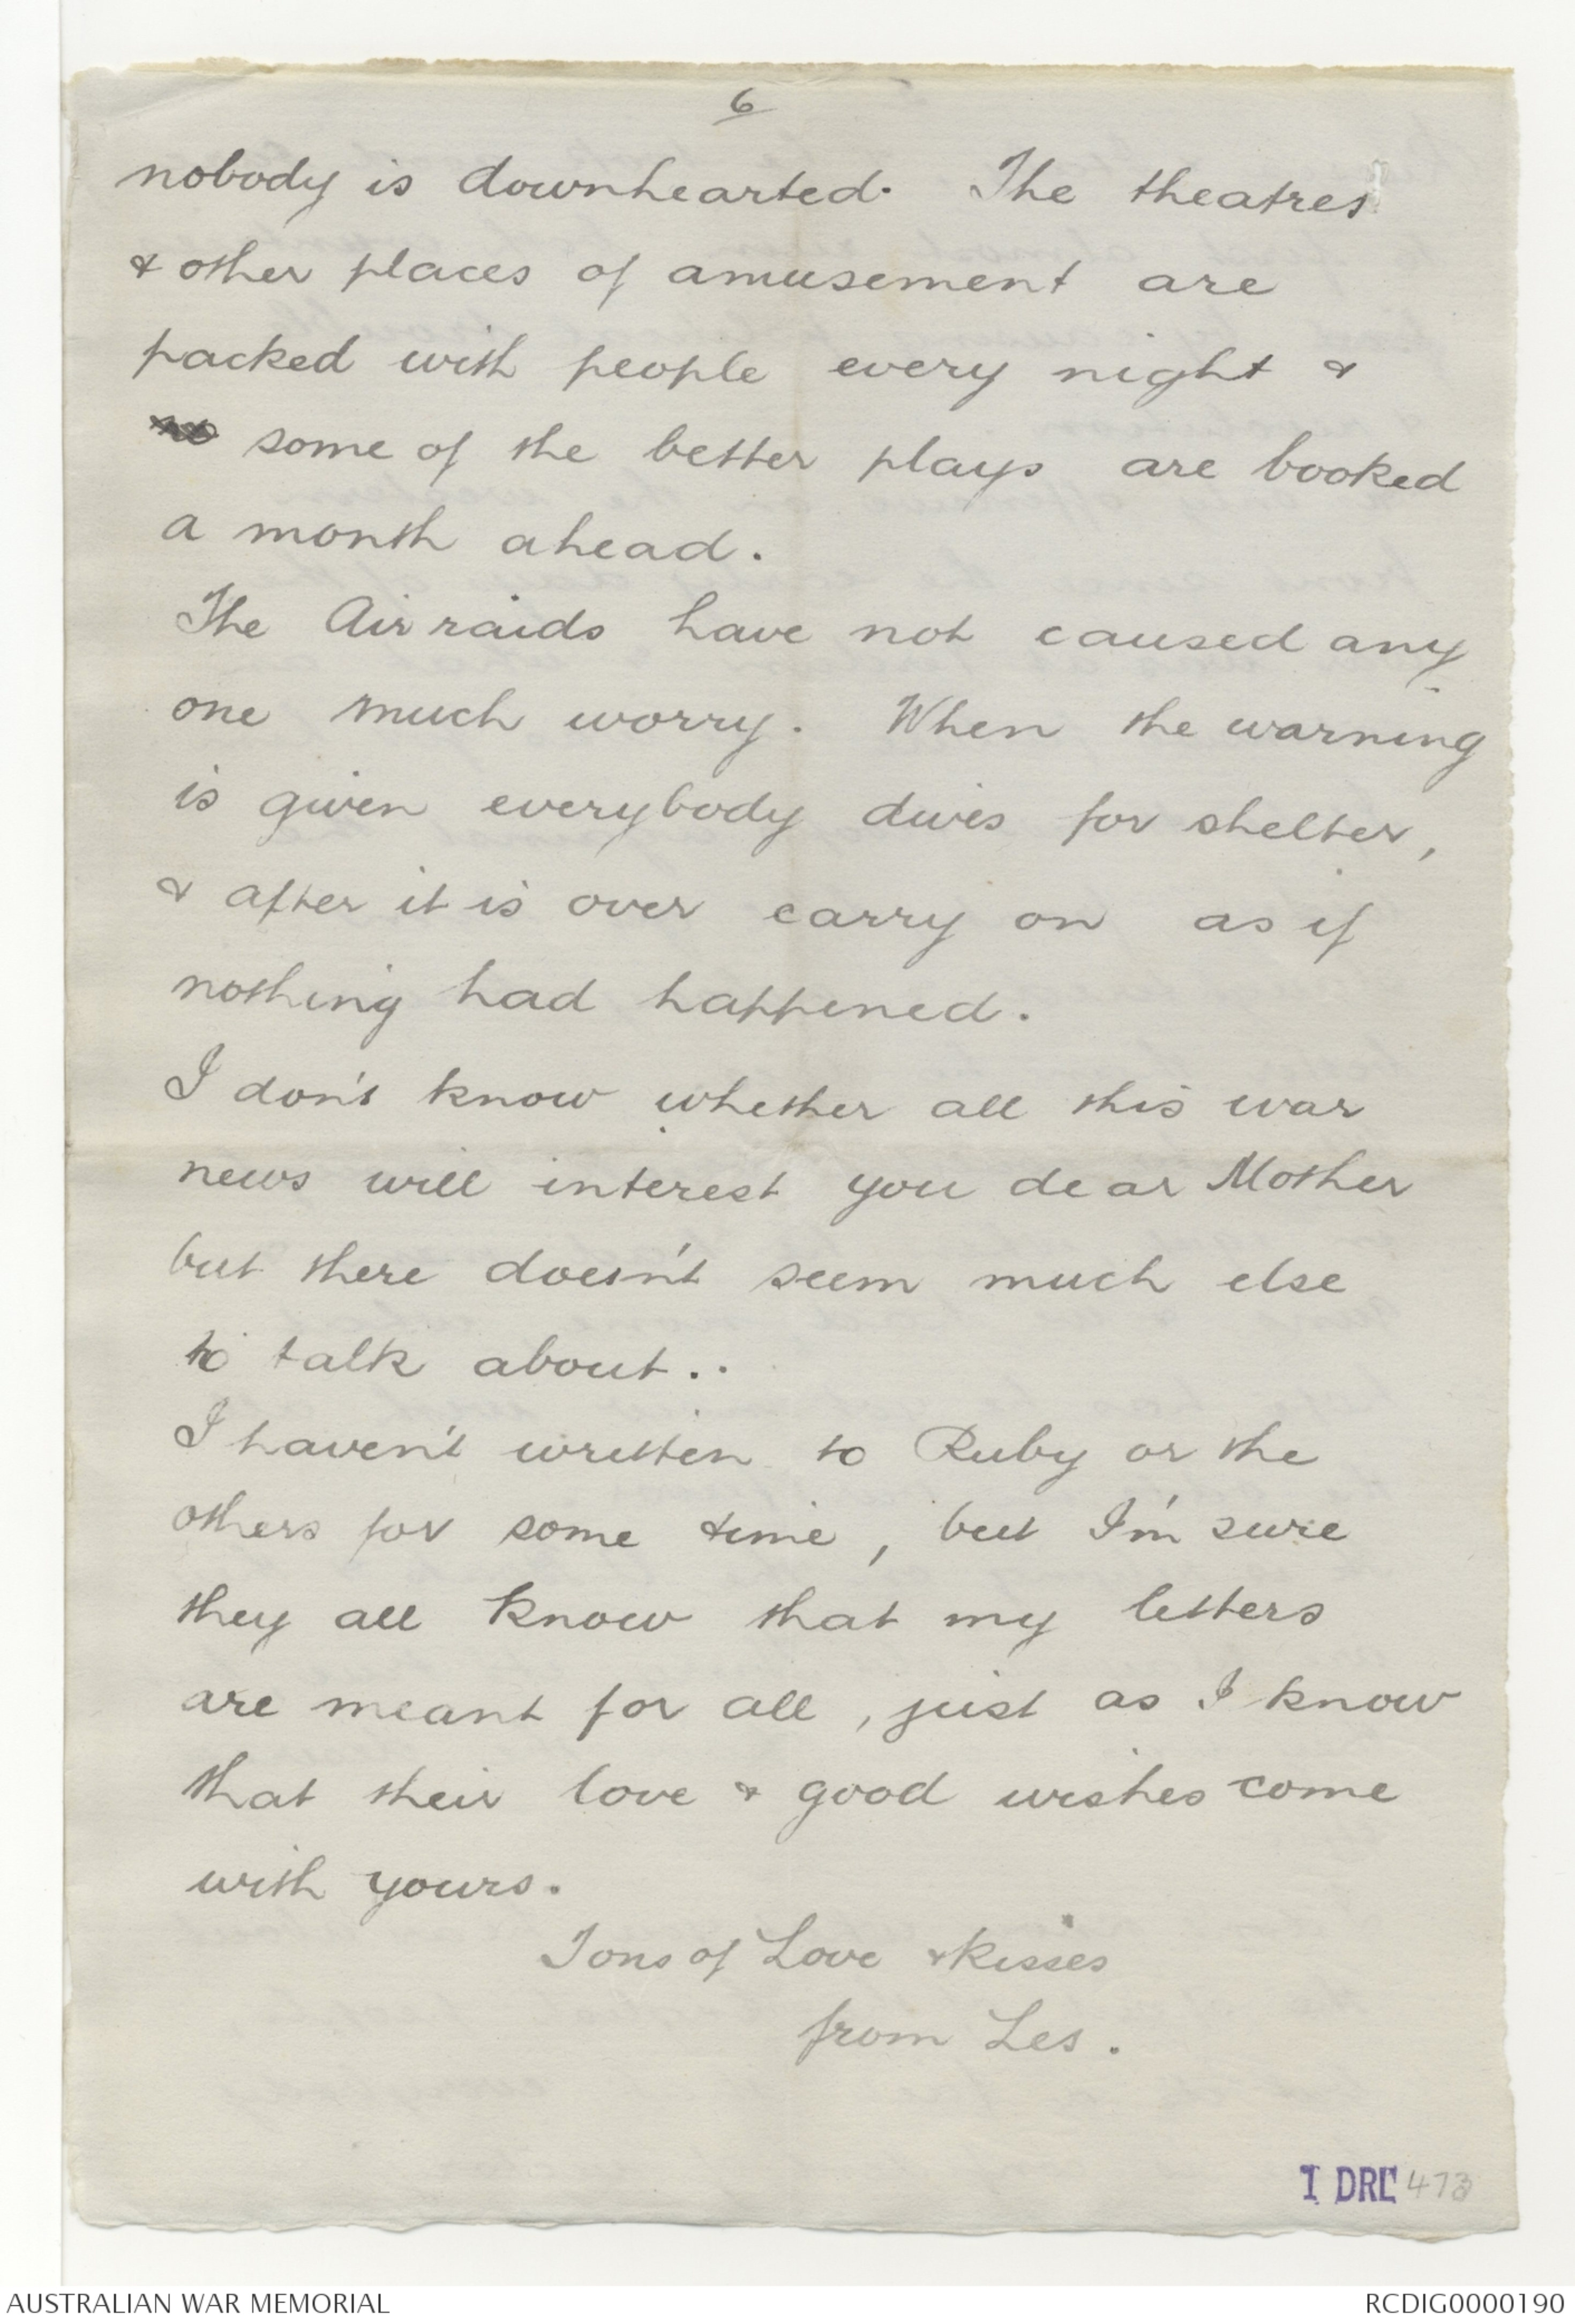 6
nobody is downhearted. The theatres
& other places of amusement are
packed with people every night &
some of the better plays are booked
a month ahead.
The Air raids have not caused any
one much worry. When the warning
is given everybody dives for shelter,
& after it is over carry on as if
nothing had happened.
I don't know whether all this war
news will interest you dear Mother
but there doesn't seem much else
to talk about..
I haven't written to Ruby or the
others for some time, but I'm sure
they all know that my letters
are meant for all, just as I know
that their love & good wishes come
with yours.
Tons of Love & Kisses
from Les.
1 DRL 473
AUSTRALIAN WAR MEMORIAL
RCDIG0000190